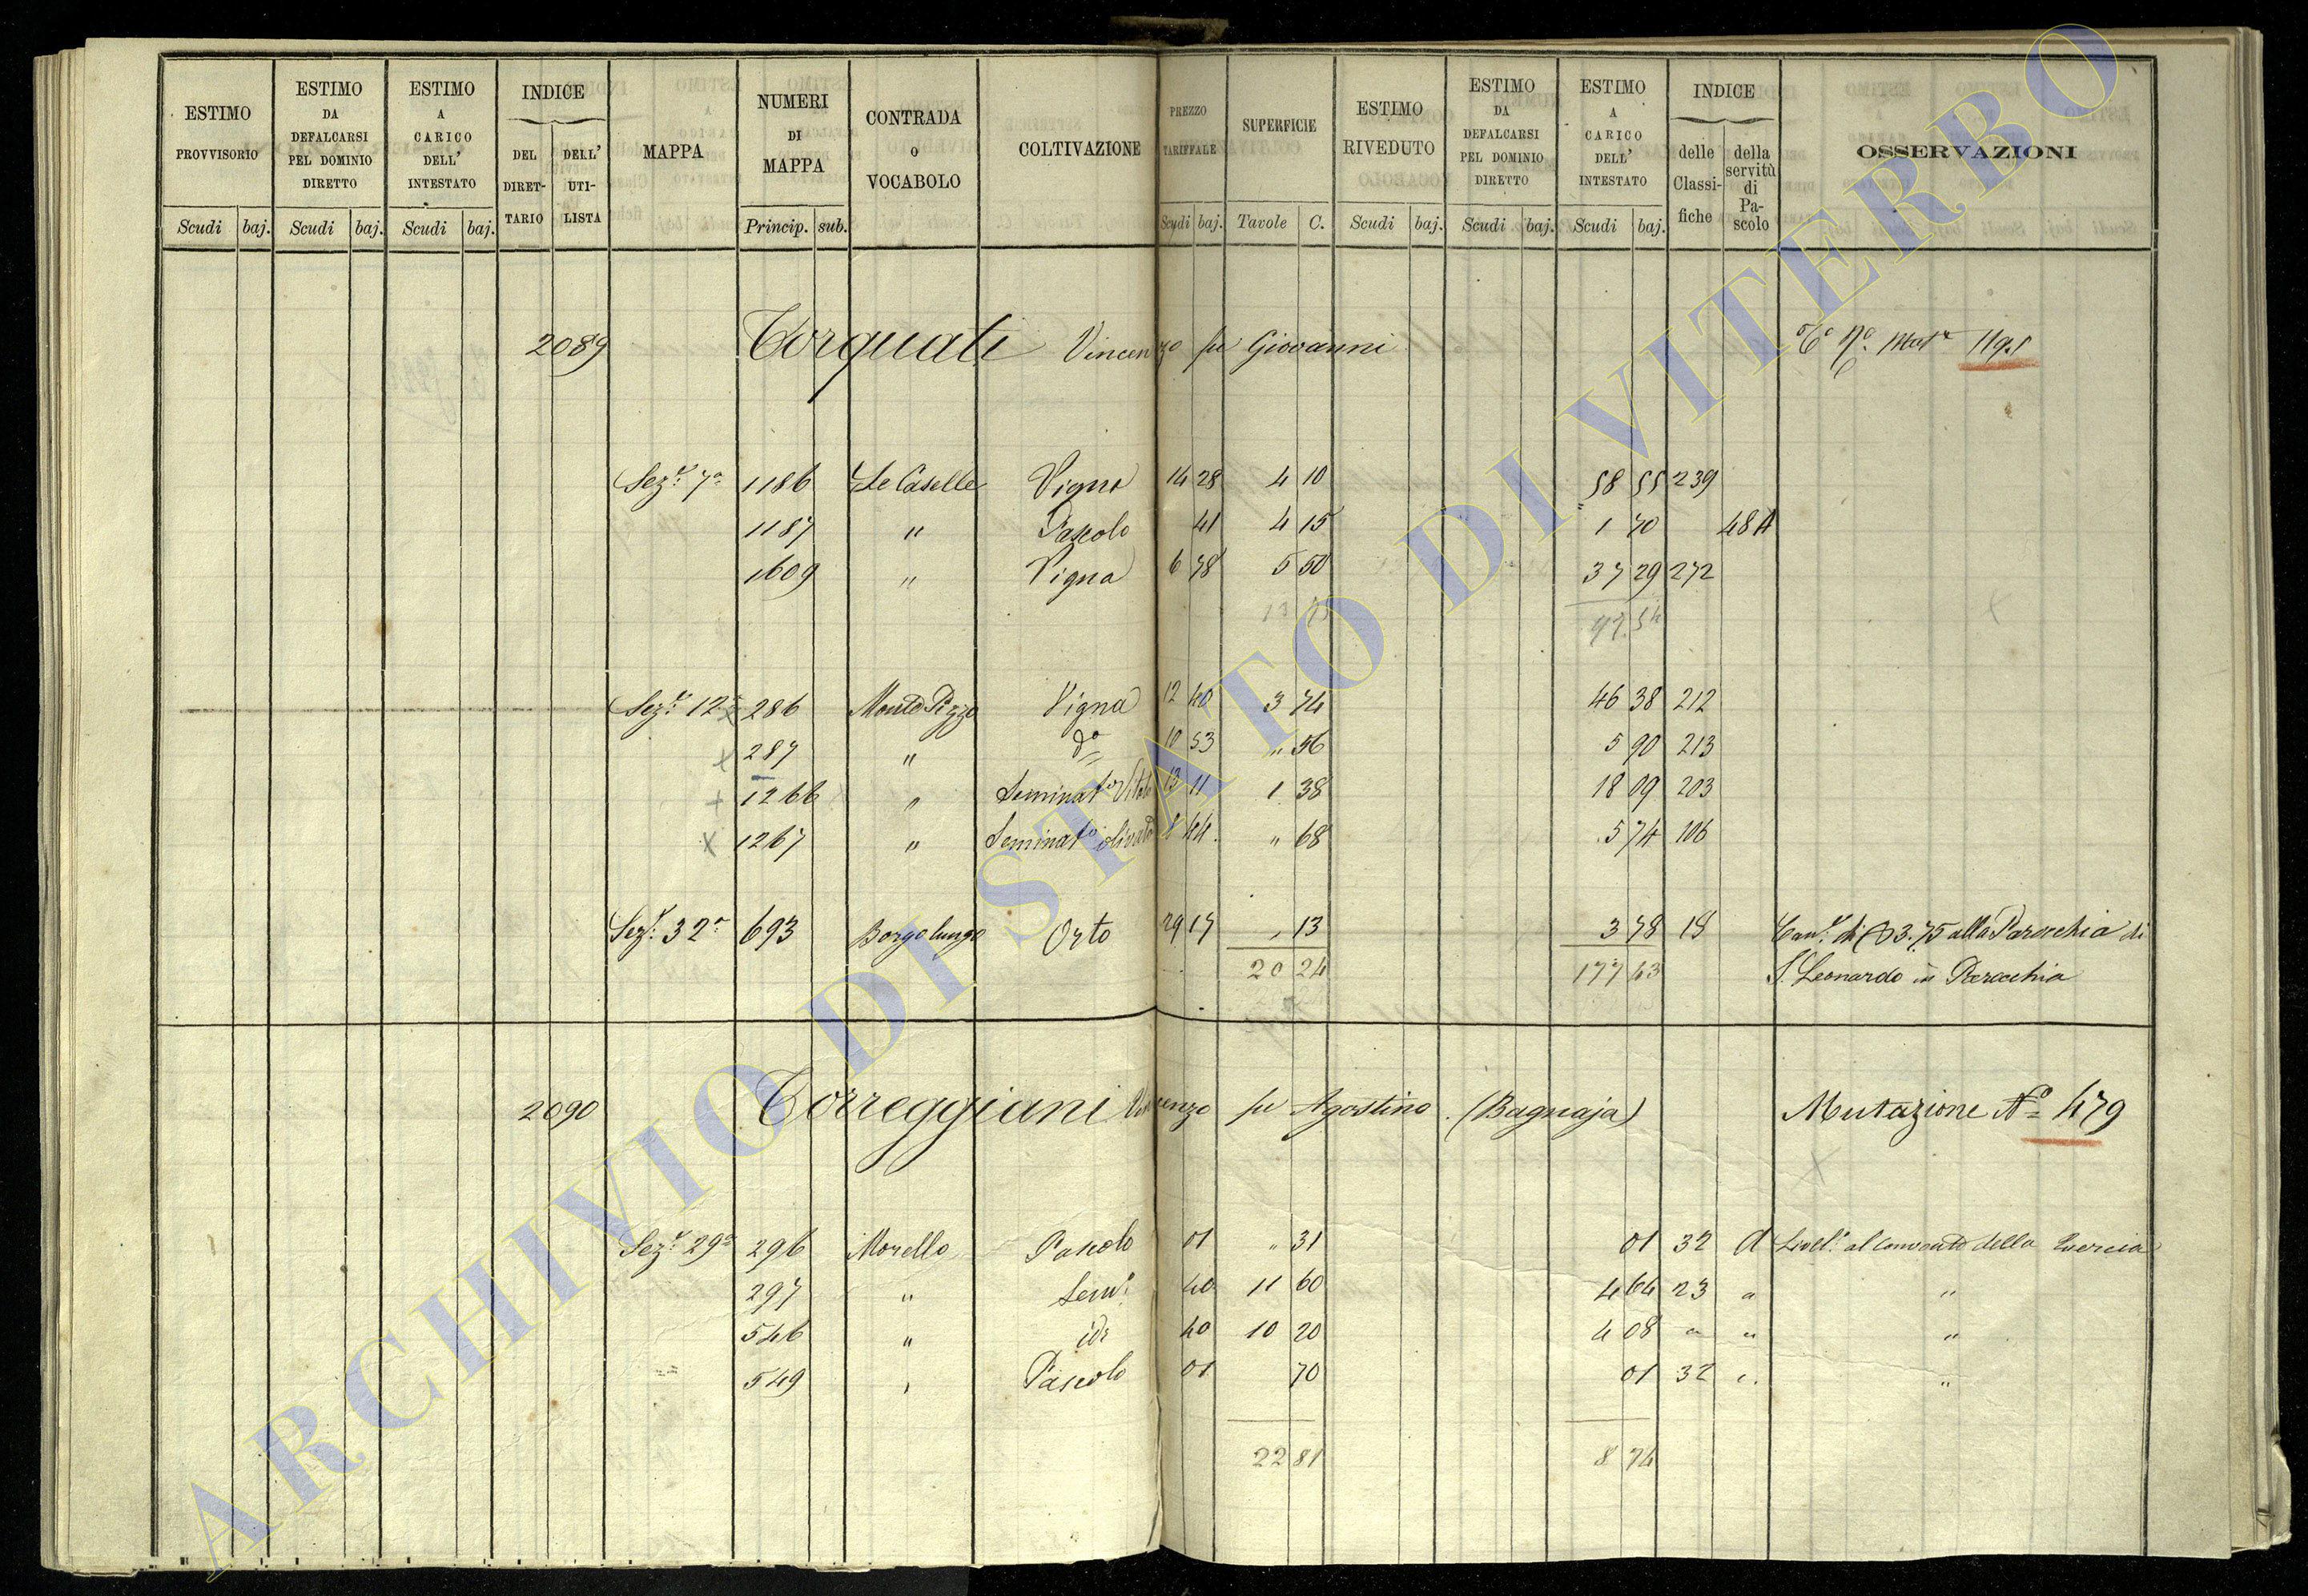 ESTIMO PROVVISORIO | ESTIMO DA DEFALCARSI PEL DOMINIO DIRETTO | ESTIMO A CARICO DELL' INTESTATO | INDICE | MAPPA | NUMERI DI MAPPA | CONTRADA O VOCABOLO | COLTIVAZIONE | PREZZO TARIFFALE | SUPERFICIE | ESTIMO RIVEDUTO | ESTIMO DA DEFALCARSI PEL DOMINIO DIRETTO | ESTIMO A CARICO DELL' INTESTATO | INDICE | OSSERVAZIONI
DEL DIRETTARIO | DELL' UTILISTA | delle Classifiche | della servitù di Pascolo
Scudi baj. | Scudi baj. | Scudi baj. | Princip. sub. | Scudi baj. | Tavole C. | Scudi baj. | Scudi baj. | Scudi baj.
2089 Torquati Vincenzo fu Giovanni
Sez.e 7a 1186 Le Caselle Vigna 14 28 4 10 58 55 239
1187 " Pascolo 41 4 15 1 70 48 A
1609 " Vigna 6 78 5 50 37 29 272
97.54
Sez.e 12a 286 Monte Pizzo Vigna 12 40 3 74 46 38 212
287 " do 10 53 " 56 5 90 213
1266 " Seminato Vitato 13 11 1 38 18 09 203
1267 " Seminato olivato 8 44 " 68 5 74 106
Sez.e 32a 693 Borgolungo Orto 29 17 " 13 3 78 18 3.75 alla Parocchia di
20 24 177 43 S. Leonardo in
2090 Torreggiani Vincenzo fu Agostino. (Bagnaja) Mutazione No 479
Sez.e 29a 296 Morello Pascolo 01 " 31 01 32 A Livello al Convento della Quercia
297 " Sem.o 40 11 60 4 64 23 " "
546 " id 40 10 20 4 08 " " "
549 " Pascolo 01 70 01 32 " "
22 81 8 74
ARCHIVIO DI STATO DI VITERBO